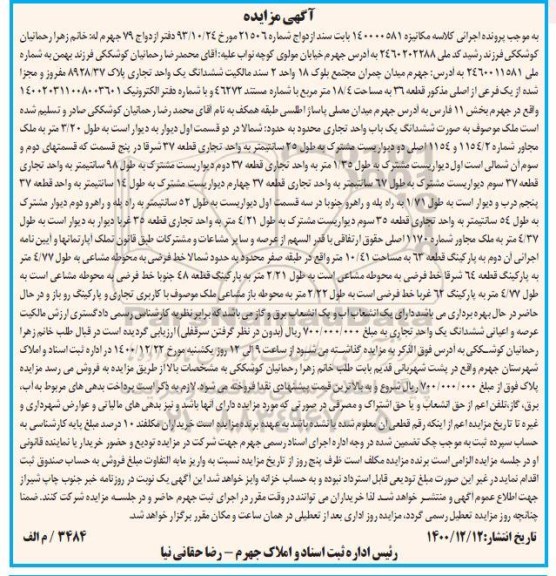 آگهی مزایده
به موجب پرونده اجرائی کلاسه مکانیزه ۱۴۰۰۰۰۵۸۱ بابت سند ازدواج شماره ۲۱۵۰۶ مورخ ۹۳/۱۰/۲۴ دفتر ازدواج ۷۹ جهرم له: خانم زهرا رحمانیان
کوشککی فرزند رشید کد ملی ۲۴۶۰۲۰۲۲۸۸ به آدرس جهرم خیابان مولوی کوچه نواب علیه: آقای محمدرضا رحمانیان کوشککی فرزند بهمن به شماره
ملی ۲۴۶۰۰۱۱۵۸۱ به آدرس: جهرم میدان چمران مجتمع بلوک ۱۸ واحد ۲ سند مالکیت ششدانگ یک واحد تجاری پلاک ۸۹۲۸/۳۷ مفروز و مجزا
شده از یک فرعی از اصلی مذکور قطعه ۳۶ به مساحت ۱۸/۴ متر مربع با شماره مستند ۴۶۲۷۲ و با شماره دفتر الکترونیک ۱۴۰۰۲۰۳۱۱۰۰۸۰۰۳۶۰۱
واقع در جهرم بخش ۱۱ فارس به آدرس جهرم میدان مصلی پاساژ اطلسی طبقه همکف به نام آقای محمد رضا رحمانیان کوشککی صادر و تسلیم شده
است ملک موصوف به صورت ششدانگ یک باب واحد تجاری محدود به حدود: شمالا در دو قسمت اول دیوار به دیوار است به طول ۳/۲۰ متر به ملک
مجاور شماره ۱۱۵۴/۲ و ۱۱۵۴ اصلی دو دیواریست مشترک به طول ۲۵ سانتیمتر به واحد تجاری قطعه ۳۷ شرقا در پنج قسمت که قسمتهای دوم و
سوم آن شمالی است اول دیواریست مشترک به طول ۱/۳۵ متر به واحد تجاری قطعه ۳۷ دوم دیواریست مشترک به طول ۹۸ سانتیمتر به واحد تجاری
قطعه ۳۷ سوم دیواریست مشترک به طول ۶۷ سانتیمتر به واحد تجاری قطعه ۳۷ چهارم دیواریست مشترک به طول ۱۴ سانتیمتر به واحد قطعه ۳۷
پنجم درب و دیوار است به طول ۱/۷۱ به راه پله و راهرو جنوبا در سه قسمت اول دیواریست به طول ۵۲ سانتیمتر به راه پله و راهرو دوم دیوار مشترک
به طول ۵۴ سانتیمتر به واحد تجاری قطعه ۳۵ سوم دیواریست مشترک به طول ۴/۲۱ متر به واحد تجاری قطعه ۳۵ غربا دیوار به دیوار است به طول
۴/۳۷ متر به ملک مجاور شماره ۱۱۷۰ اصلی حقوق ارتفاقی با قدر السهم از عرصه و سایر مشاعات و مشترکات طبق قانون تملک آپارتمانها و آیین نامه
اجرائی آن دوم به پارکینگ قطعه ۶۳ به مساحت ۱۰/۴۱ متر واقع در طبقه صفر محدود به حدود شمالا خط فرضی به محوطه مشاعی به طول ۴/۷۷ متر
به پارکینگ قطعه ۶۴ شرقا خط فرضی به محوطه مشاعی است به طول ۲/۲۱ متر به پارکینگ قطعه ۴۸ جنوبا خط فرضی به محوطه مشاعی است به
طول ۴/۷۷ متر به پارکینگ ۶۲ غربا خط فرضی است به طول ۲/۲۲ متر به محوطه باز مشاعی ملک موصوف با کاربری تجاری و پارکینگ رو باز و در حال
حاضر در حال بهره برداری می باشد دارای یک انشعاب آب و یک انشعاب برق و گاز می باشد که برابر نظریه کارشناس رسمی دادگستری ارزش مالکیت
عرصه و اعیانی ششدانگ یک واحد تجاری به مبلغ ۷/۰۰۰/۰۰۰/۰۰۰ ریال (بدون در نظر گرفتن سرقفلی) ارزیابی گردیده است در قبال طلب خانم زهرا
رحمانیان کوشککی به آدرس فوق الذکر به مزایده گذاشته می شود از ساعت ۹ الی ۱۲ روز یکشنبه مورخ ۱۴۰۰/۱۲/۲۲ در اداره ثبت اسناد و املاک
شهرستان جهرم واقع در پشت شهربانی قدیم بابت طلب خانم زهرا رحمانیان کوشککی به مشخصات بالا از طریق مزایده به فروش می رسد مزایده
پلاک فوق از مبلغ ۷/۰۰۰/۰۰۰/۰۰۰ ریال شروع و به بالاترین قیمت پیشنهادی نقدا فروخته می شود. لازم به ذکر است پرداخت بدهی های مربوط به آب،
برق، گاز، تلفن اعم از حق انشعاب و یا حق اشتراک و مصرفی در صورتی که مورد مزایده دارای آنها باشد و نیز بدهی های مالیاتی و عوارض شهرداری و
غیره تا تاریخ مزایده اعم از اینکه رقم قطعی آن معلوم شده یا نشده باشد به عهده برنده مزایده است خریداران مکلفند ۱۰ درصد مبلغ پایه کارشناسی به
حساب سپرده ثبت به موجب چک تضمین شده در وجه اداره اجرای اسناد رسمی جهرم جهت شرکت در مزایده تودیع و حضور خریدار یا نماینده قانونی
او در جلسه مزایده الزامی است برنده مزایده مکلف است ظرف پنج روز از تاریخ مزایده نسبت به واریز مابه التفاوت مبلغ فروش به حساب صندوق ثبت
اقدام نماید در غیر این صورت مبلغ تودیعی قابل استرداد نبوده و به حساب خزانه واریز خواهد شد این آگهی یک نوبت در روزنامه خبر جنوب چاپ شیراز
جهت اطلاع عموم آگهی و منتشر خواهد شد لذا خریداران می توانند در وقت مقرر در اجرای ثبت جهرم حاضر و در جلسه مزایده شرکت کنند. ضمنا
چنانچه روز مزایده تعطیل رسمی گردد، مزایده روز اداری بعد از تعطیلی در همان ساعت و مکان مقرر برگزار خواهد شد.
تاریخ انتشار: ۱۴۰۰/۱۲/۱۲
۳۴۸۴ / م الف
رئیس اداره ثبت اسناد و املاک جهرم – رضا حقانی نیا